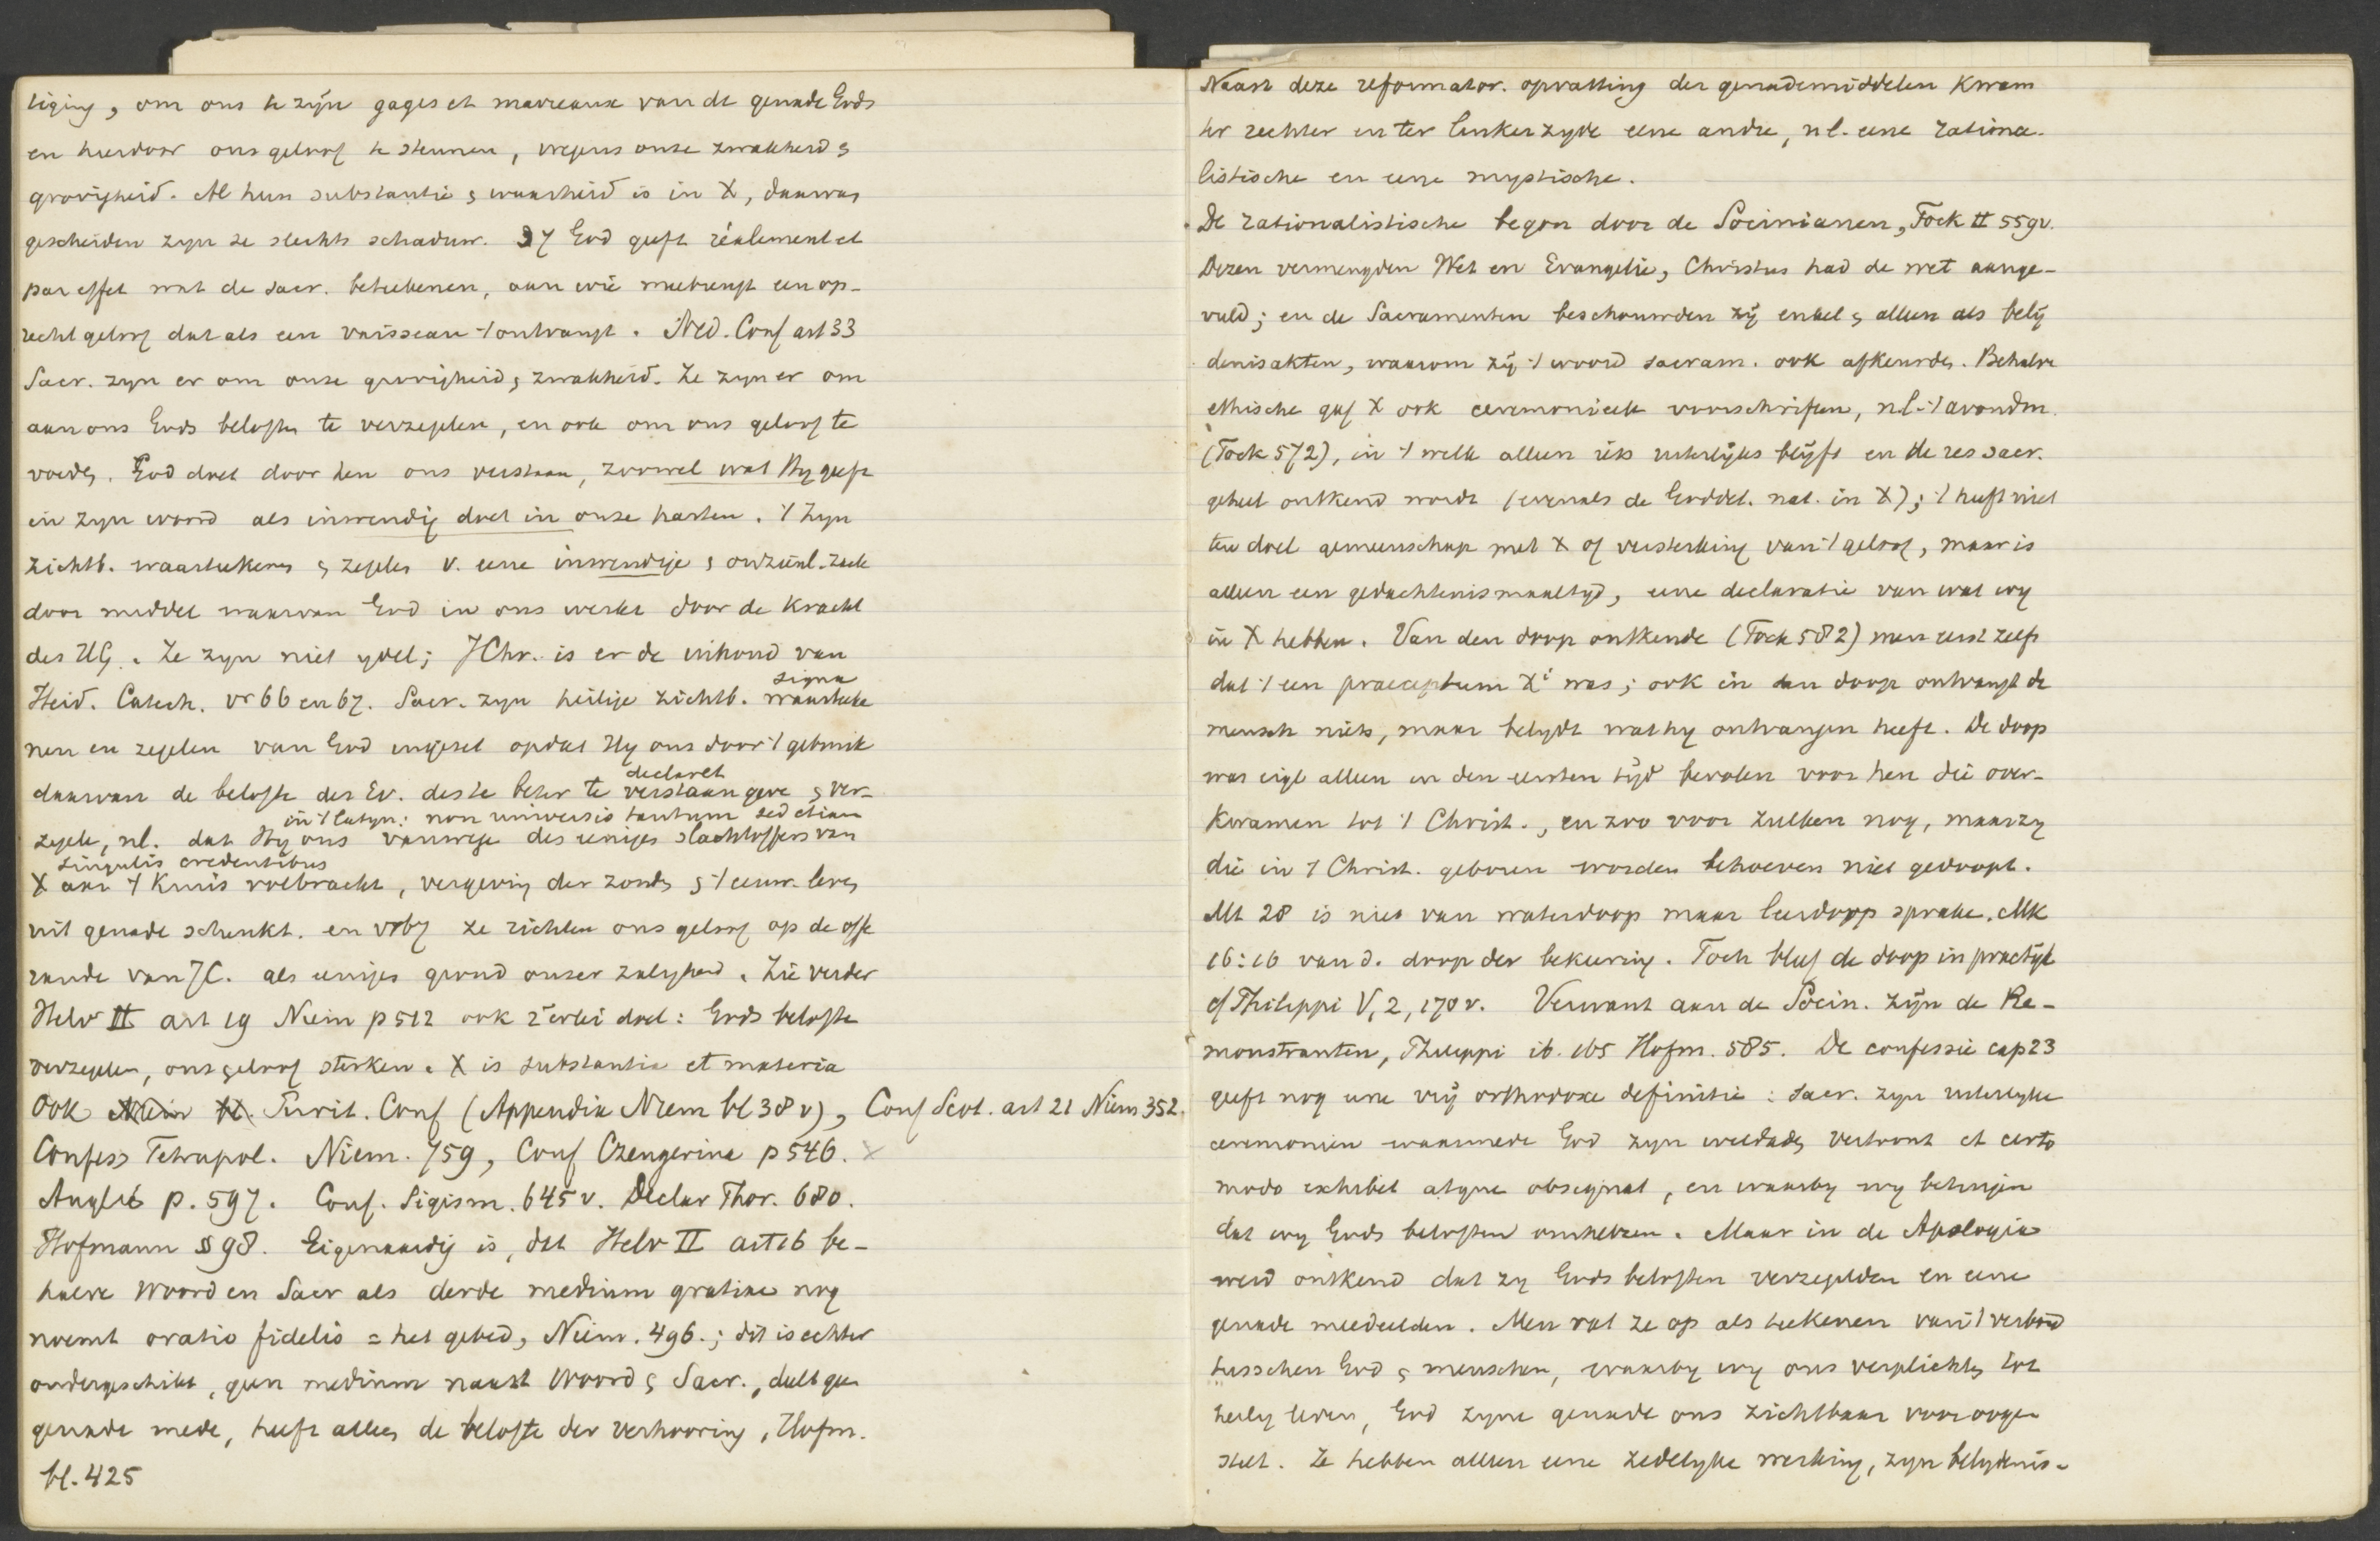 tiging, om ons te zijn gages et marreaux van de genade Gods
en hierdoor ons geloof te steunen, wegens onze zwakheid &
grovigheid. Al hun substantie & waarheid is in X, daarvan
gescheiden zyn ze slechts schaduw. 37 God geeft réalement et
par effet wat de sacr. beteekenen, aan wie meebrengt een op-
recht geloof dat als een vaisseau 't ontvangt. Ned. Conf art 33
Sacr. zyn er om onze grovigheid, zwakheid. Ze zyn er om
aan ons Gods beloften te verzegelen, en ook om ons geloof te
voeden. God doet door hen ons verstaan, zoowel wat Hy geeft
in zyn woord als inwendig doet in onze harten. 't Zyn
zichtb. waarteekenen & zegelen v. eene inwendige & onzienl. zaak
door middel waarvan God in ons werkt door de kracht
des HG. Ze zyn niet ydel; JChr. is er de inhoud van
Heid. Catech. vr 66 en 67. Sacr. zyn heilige zichtb. waarteeke
signa
nen en zegelen van God ingezet opdat Hy ons door 't gebruik
daarvan de belofte des Ev. des te beter te verstaan geve & ver-
declaret
zegele, nl. dat Hy ons vanwege des eeniges slachtoffers van
in 't latyn: non universis tantum sed etiam
singulis credentibus
X aan 't Kruis volbracht, vergeving der zonden & 't eeuw. leven
uit genade schenkt. en vr 67 ze richten ons geloof op de offe
rande van JC. als eenigen grond onzer zaligheid. Zie verder
Helv II art 19 Niem p 512 ook 2erlei doel: Gods belofte
verzegelen, ons geloof sterken. X is substantia et materia
Ook Purit. Conf (Appendix Niem bl 38 v), Conf Scot. art 21 Niem 352.
Confess Tetrapol. Niem. 759, Conf Czengerina p 546.
Anglic p. 597. Conf. Sigism. 645 v. Declar Thor. 680.
Hofmann § 98. Eigenaardig is, dat Helv II art 16 be-
halve Woord en Sacr als derde medium gratiae nog
noemt oratio fidelis = het gebed, Niem. 496.; dit is echter
ondergeschikt, geen medium naast Woord & Sacr., deelt geen
genade mede, heeft alleen de belofte der verhooring, Hofm.
bl. 425
Naast deze reformator. opvatting der genademiddelen kwam
ter rechter en ter linkerzyde eene andre, nl. eene rationa-
listische en eene mystische.
De rationalistische begon door de Socinianen, Fock II 559v.
Dezen vermengden Wet en Evangelie, Christus had de wet aange-
vuld; en de Sacramenten beschouwden zij enkel & alleen als belij
denisakten, waarom zij 't woord sacram. ook afkeurden. Behalve
ethische gaf X ook ceremonieele voorschriften, nl. 't avondm.
(Fock 572), in 't welk alleen iets uiterlijks blijft en de res sacr.
geheel ontkend wordt (evenals de Goddel. nat. in X); 't heeft niet
ten doel gemeenschap met X of versterking van 't geloof, maar is
alleen een gedachtenismaaltyd, eene declaratie van wat wy
in X hebben. Van den doop ontkende (Fock 582) men eerst zelfs
dat 't een praeceptum Xi was; ook in den doop ontvangt de
mensch niets, maar belydt wat hy ontvangen heeft. De doop
was eigl alleen in den eersten tijd bevolen voor hen die over-
kwamen tot 't Christ., en zoo voor zulken nog, maar zy
die in 't Christ. geboren worden behoeven niet gedoopt.
Mt 28 is niet van waterdoop maar leerdoop sprake. Mk
16:16 van d. doop der bekeering. Toch bleef de doop in practijk
cf Philippi V, 2, 170 v. Verwant aan de Socin. zijn de Re-
monstranten, Philippi ib. 165 Hofm. 585. De confessie cap 23
geeft nog eene vrij orthodoxe definitie: sacr. zyn uiterlyke
ceremonien waarmede God zyn weldaden vertoont et certo
modo exhibet atque obsignat, en waarby wy betuigen
dat wy Gods beloften omhelzen. Maar in de Apologie
werd ontkend dat zy Gods beloften verzegelden en eene
genade meedeelden. Men vat ze op als teekenen van 't verbond
tusschen God & menschen, waarby wy ons verplichten tot
heilig leven, God zyne genade ons zichtbaar voor oogen
stelt. Ze hebben alleen eene zedelyke werking, zyn belydenis-